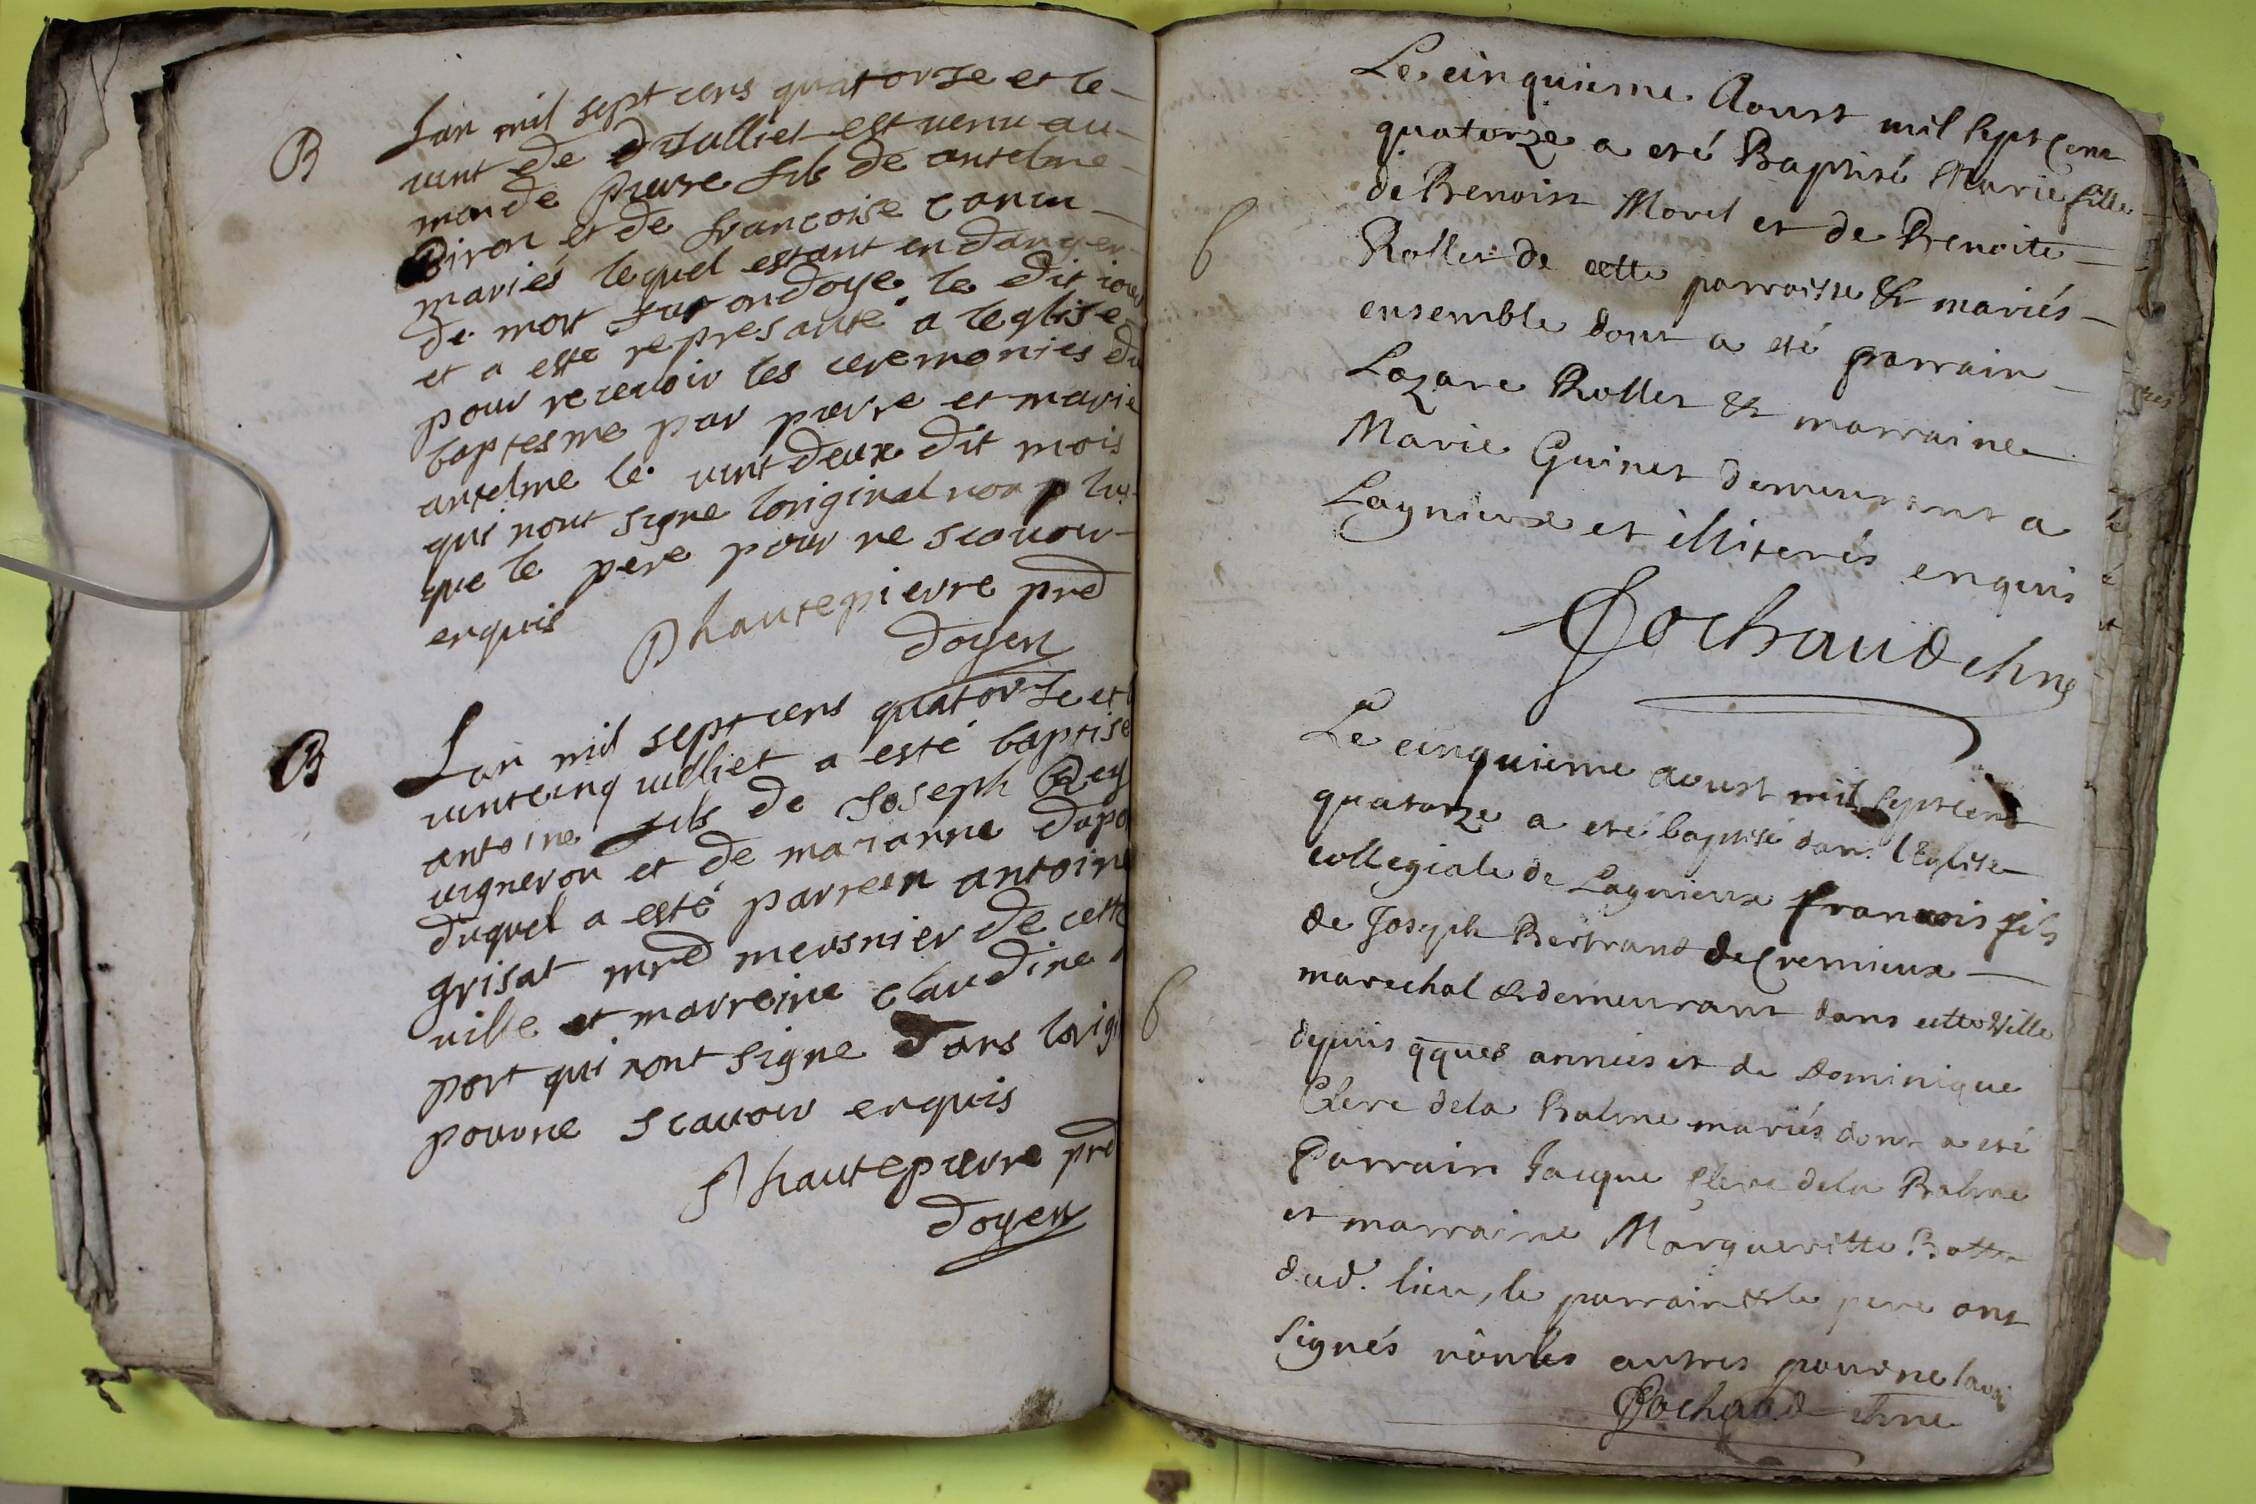 B
Lan mil sept cens quatorse et le
vint de Julliet est venu au
monde pierre fils de antelme
Biron et de francoise
mariés lequel estant en danger
de mort fut ondoye le dit iour
et a esté represanté a leglise
pour recevoir les ceremonies du
baptesme par pierre et marie
antelme le vint deux dit mois
qui nont signe loriginal non plus
que le pere pour ne scavoir
enquis
P hautepierre pre
doyen
B
Lan mil sept cens quatorse et l
vintcinq iulliet a esté baptisé
antoine fils de Joseph Rey
vigneron et de marianne dupo
duquel a esté parrein antoine
grisat mrd meusnier de cette
ville et marreine claudine
port qui nont signe dans lorigi
pour ne scavoir enquis
P hautepierre pre
doyen
Le cinquieme Aoust mil sept Cens
quatorze a eté Baptisé Marie fille
de Benoist Morel et de Benoite
Rollet de cette parroisse & mariés
ensemble dont a eté parrain
Lazare Rollet & marraine
Marie Guinet demeurant a
Lagnieux et illiterés enquis
Cochaud chne
b
Le cinquieme aoust mil sept cens
quatorze a eté baptisé dans l'Eglise
collegiale de Lagnieux francois fils
de Joseph Bertrand de Cremieux
marechal & demeurant dans cette Ville
depuis qques années et de Dominique
Clere dela Balme mariés dont a eté
Parrain Jacque Clere dela Balme
et marraine Margueritte
dud. lieu, le parrain & le pere ont
signés non les autres pour ne savoi
Cochaud chne
b